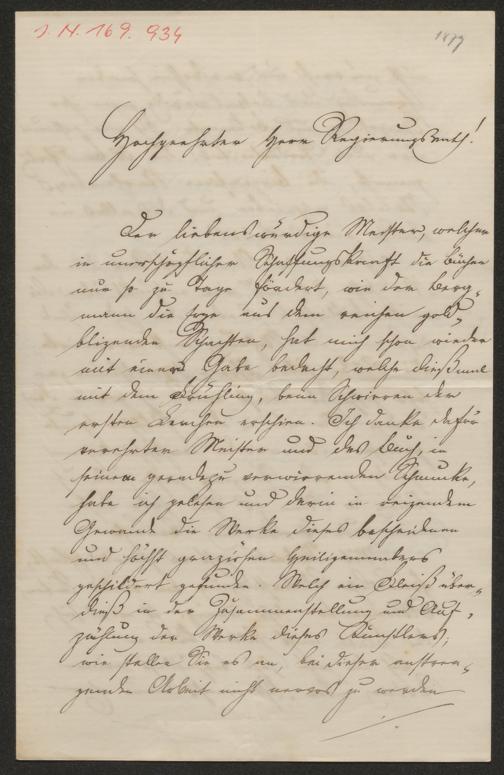 J. N. 169.934
1877
Hochgeehrter Herr Regierungsrath!
Der liebenswürdige Meister, welcher
in unerschöpflicher Schaffungskraft die Bücher
nur so zu Tage fördert, wie der Berg-
mann die aus dem reichen gold-
blizenden Schachten, hat mich schon wieder
mit einer Gabe bedacht, welche dießmal
mit dem Frühling, beim Schwirren der
ersten Lerchen erschien. Ich danke dafür
verehrter Meister und das Buch, in
seinem geradezu verwirrenden Schmucke,
habe ich gelesen und darin in reizendem
Gewande die Werke dieses bescheidenen
und höchst graziösen Heiligenmalers
geschildert gefunden. Welch ein Fleiß über-
dieß in der Zusammenstellung und Auf-
zählung der Werke dieses Künstlers;
wie stellen Sie es an, bei dieser anstren-
genden Arbeit nicht nervos zu werden